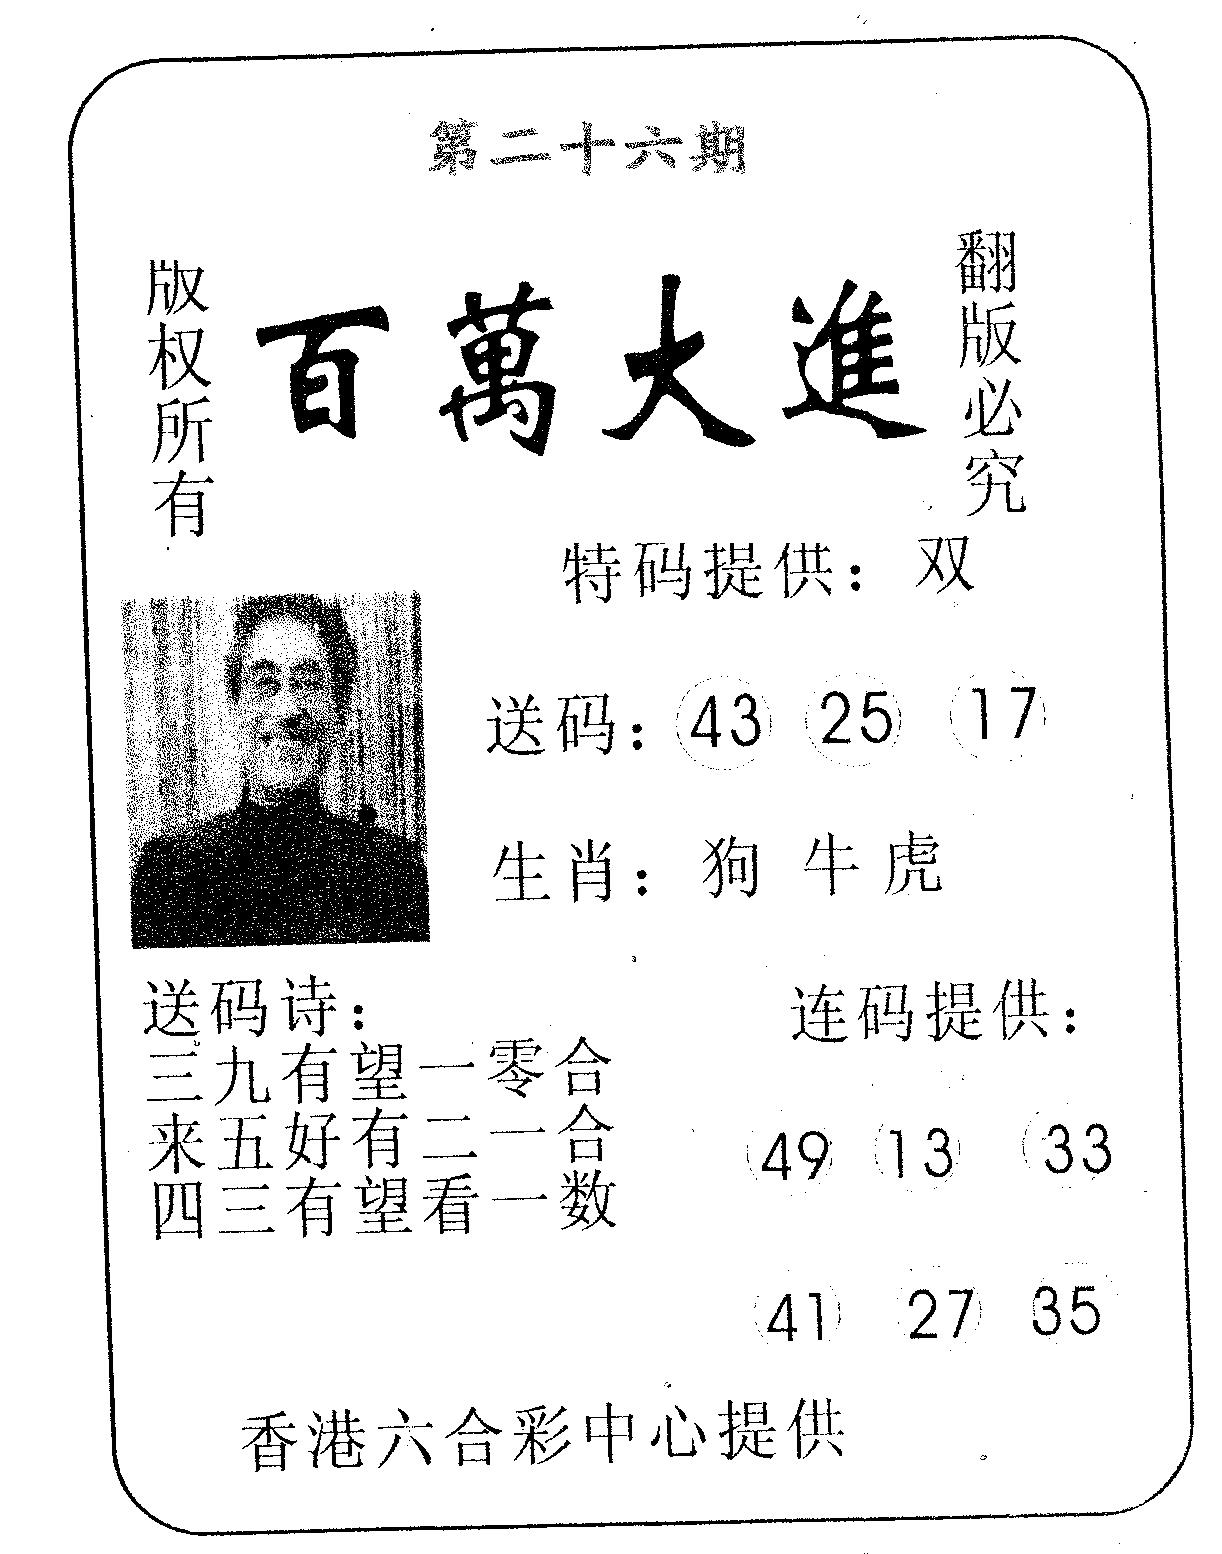 第二十六期
版权所有
百萬大進
翻版必究
特码提供：双
送码：43 25 17
生肖：狗 牛 虎
送码诗：
三九有望一零合
来五好有二一合
四三有望看一数
连码提供：
49 13 33
41 27 35
香港六合彩中心提供